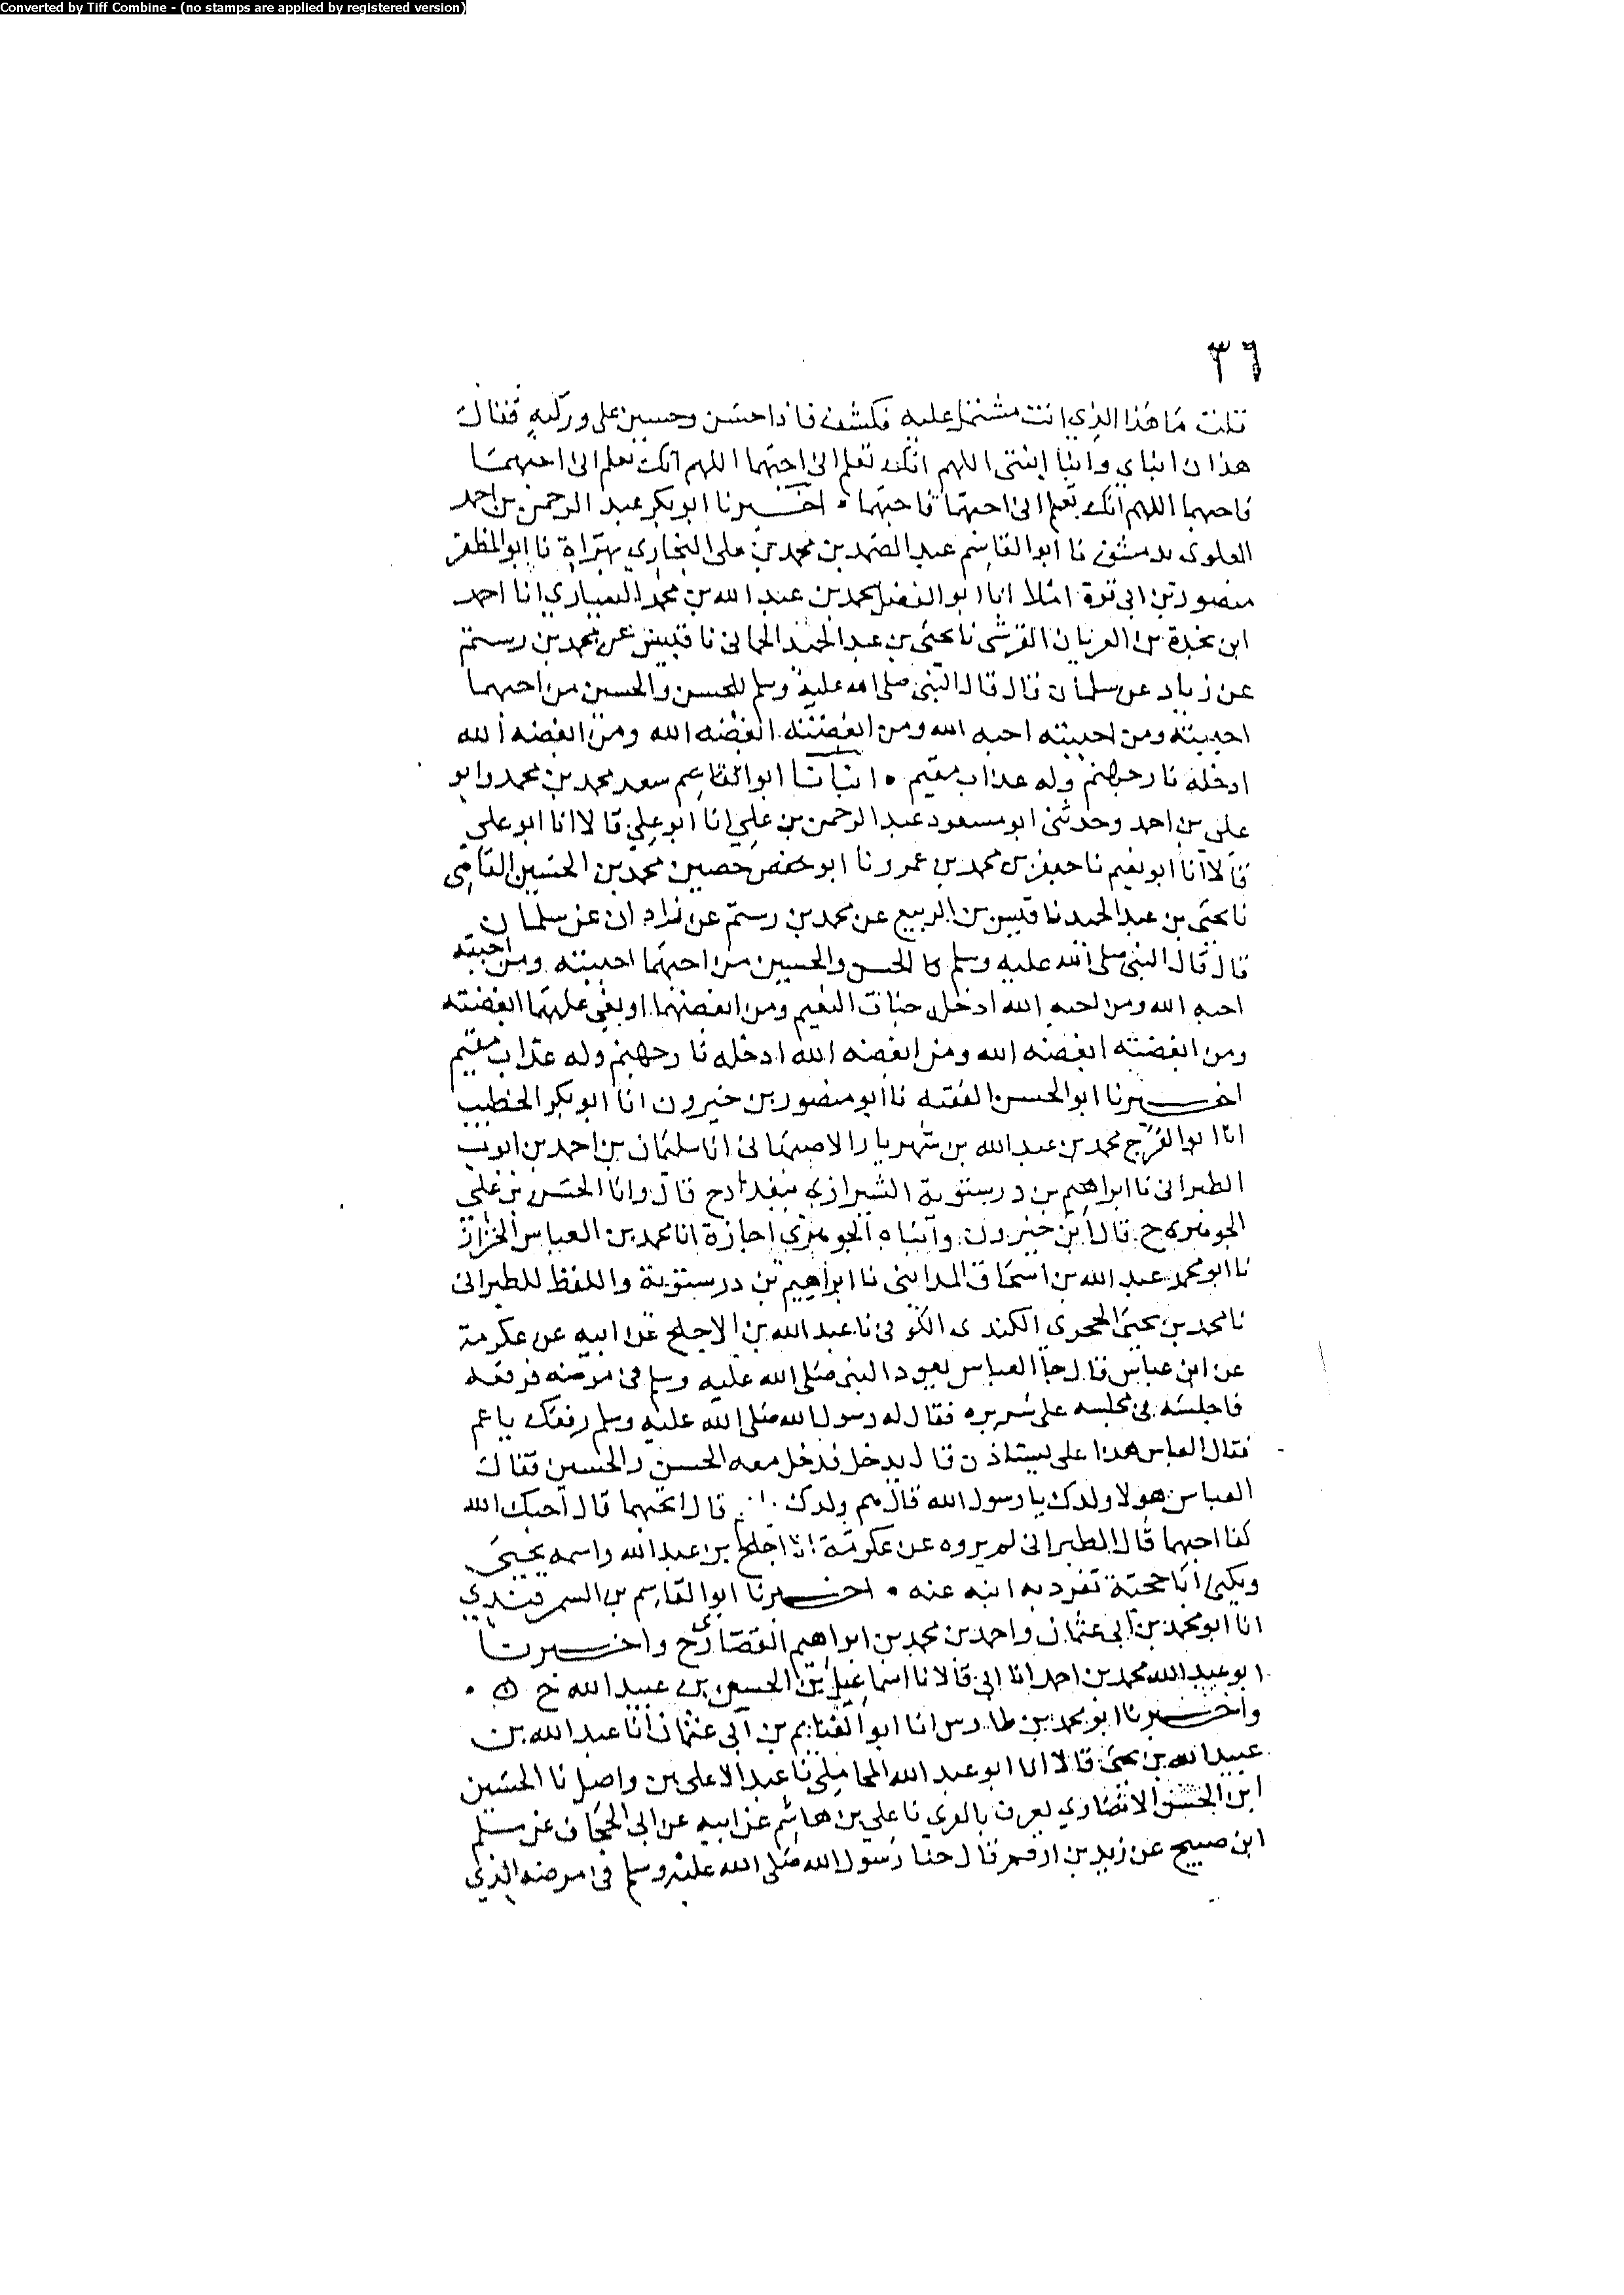 Converted by Tiff Combine - (no stamps are applied by registered version)
٣٦
قلت ما هذا الذي انت مشتمل عليه فكشف فاذا حسن وحسين على وركيه فقال
هذان ابناي وابنا ابنتي اللهم انك تعلم اني احبهما اللهم انك تعلم اني احبهما
فاحبهما اللهم انك تعلم اني احبهما فاحبهما اخبرنا ابو بكر عبد الرحمن بن احمد
العلوى بدمشق نا ابو القاسم عبد الصمد بن محمد بن على البخاري بهراة نا ابو المظفر
منصور بن ابي قرة املا انا ابو الفضل محمد بن عبد الله بن محمد السياري انا احمد
ابن نجدة بن العريان القرشى نا يحيى بن عبد الحميد الحمانى نا قيس عن محمد بن رستم
عن زياد عن سلمان قال قال النبي صلى الله عليه وسلم للحسن والحسين من احبهما
احببته ومن احببته احبه الله ومن ابغضته ابغضه الله ومن ابغضه الله
ادخله نار جهنم وله عذاب مقيم ٥ انبانا ابو القاسم سعد محمد بن محمد وابو
على بن احمد وحدثنى ابو مسعود عبد الرحمن بن علي انا ابو علي قالا انا ابو علي
قالا انا ابو نعيم نا جعفر بن محمد بن عمرو نا ابو حفص حصين محمد بن الحسين القاضي
نا يحيى بن عبد الحميد نا قيس بن الربيع عن محمد بن رستم عن زاذان عن سلمان
قال قال النبي صلى الله عليه وسلم الحسن والحسين من احبهما احببته ومن احببته
احبه الله ومن احبه الله ادخله جنات النعيم ومن ابغضهما او بغى عليهما ابغضته
ومن ابغضته ابغضه الله ومن ابغضه الله ادخله نار جهنم وله عذاب مقيم
اخبرنا ابو الحسن الفقيه نا ابو منصور بن خيرون انا ابو بكر الخطيب
انا ابو الفرج محمد بن عبد الله بن شهريار الاصبهانى انا سليمان بن احمد بن ايوب
الطبرانى نا ابراهيم بن درستوية الشيرازي ببغداد ح قال وانا الحسن بن علي
الجوهرى ح قال ابن خيرون وانباه الجوهري اجازة انا محمد بن العباس الخزاز
نا ابو محمد عبد الله بن اسحاق المداينى نا ابراهيم بن درستوية واللفظ للطبرانى
نا محمد بن يحيى الحجري الكندى الكوفى نا عبد الله بن الاجلح عن ابيه عن عكرمة
عن ابن عباس قال جاء العباس يعود النبي صلى الله عليه وسلم فى مرضه فرفعه
فاجلسه فى مجلسه على سريره فقال له رسول الله صلى الله عليه وسلم رفعك يا عم
فقال العباس هذا على يستاذن قال يدخل فدخل معه الحسن والحسين فقال
العباس هولا ولدك يا رسول الله قال هم ولدك قال اتحبهما قال احبك الله
كما احبهما قال الطبرانى لم يروه عن عكرمة الا اجلح بن عبد الله واسمه يحيى
ويكنى ابا حجية تفرد به ابنه عنه • اخبرنا ابو القاسم بن السمرقندي
انا ابو محمد بن ابى عثمان واحمد بن محمد بن ابراهيم القصاري ح واخبرنا
ابو عبد الله محمد بن احمد انا ابي قالا نا اسماعيل بن الحسين بن عبيد الله ح
واخبرنا ابو محمد بن طاوس انا ابو الغنايم بن ابي عثمان انا عبد الله بن
عبيد الله بن يحيى قالا انا ابو عبد الله المحاملي نا عبد الاعلى بن واصل نا الحسين
ابن الحسن الانصاري يعرف بالعرني نا علي بن هاشم عن ابيه عن ابى الجحاف عن مسلم
ابن صبيح عن زيد بن ارقم قال حنا رسول الله صلى الله عليه وسلم في مرضه الذي